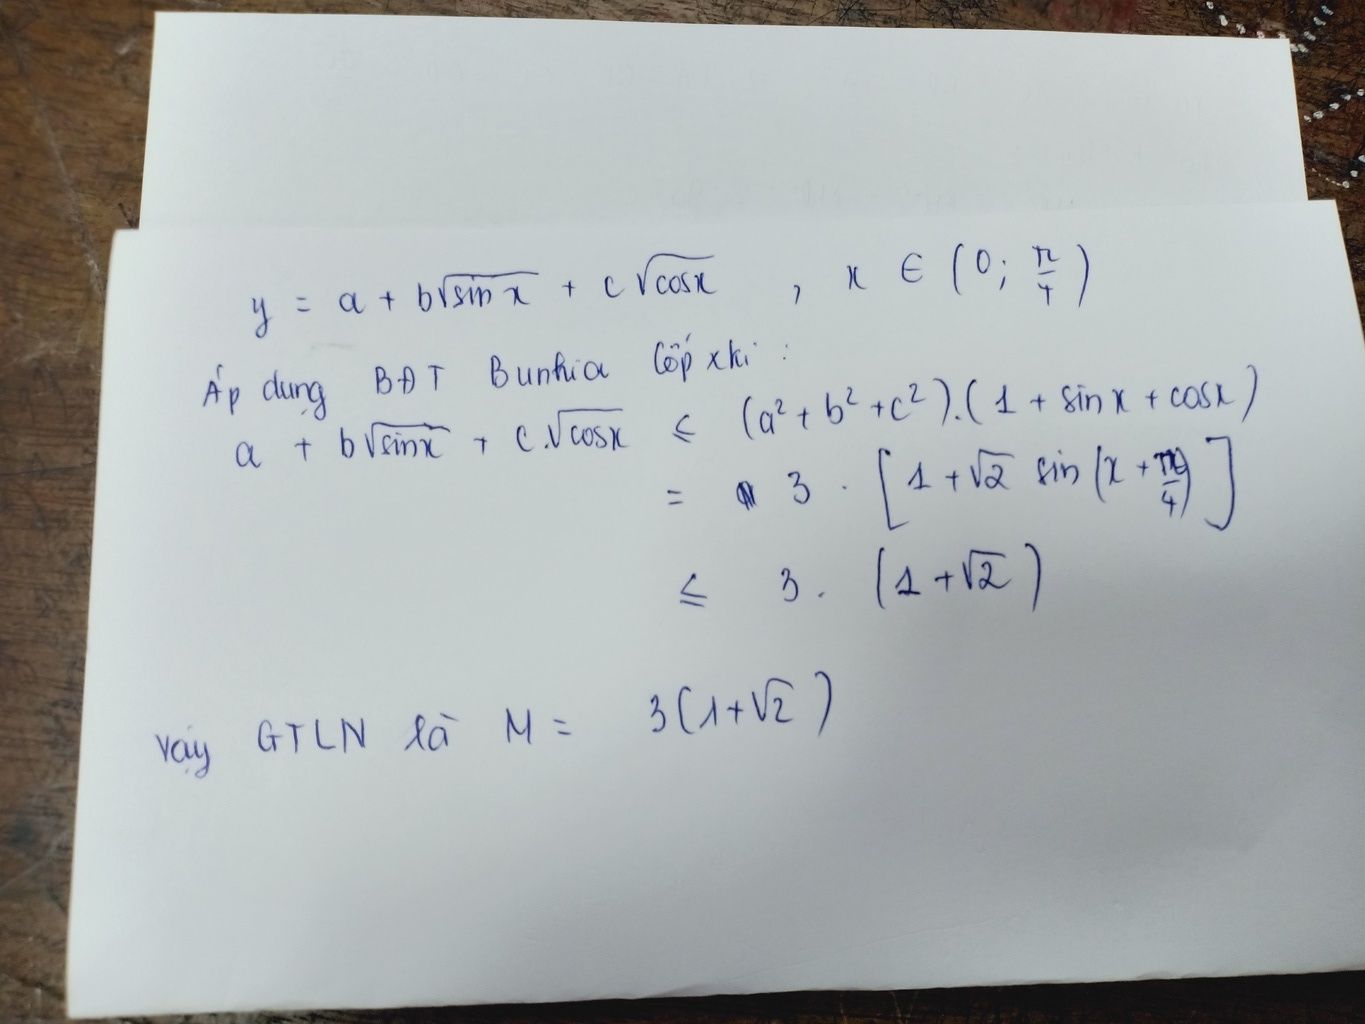 y = a + b√sin x + c√cosx , x ∈ (0; π/4)
Áp dụng BĐT Bunhia Cốp xki :
a + b√sinx + c.√cosx ≤ (a² + b² + c²).(1 + sinx + cosx)
= 3 . [1 + √2 sin(x + π/4)]
≤ 3 . (1 + √2)
Vậy GTLN là M = 3(1+√2)